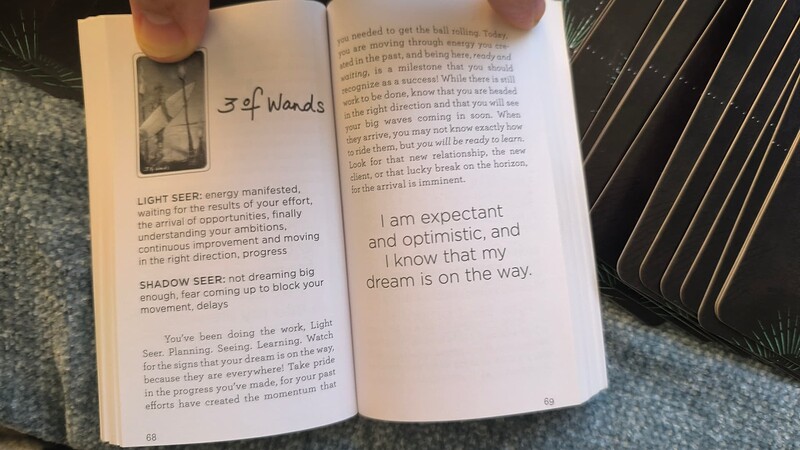 3 of Wands
LIGHT SEER: energy manifested,
waiting for the results of your effort,
the arrival of opportunities, finally
understanding your ambitions,
continuous improvement and moving
in the right direction, progress
SHADOW SEER: not dreaming big
enough, fear coming up to block your
movement, delays
You've been doing the work, Light
Seer. Planning. Seeing. Learning. Watch
for the signs that your dream is on the way,
because they are everywhere! Take pride
in the progress you've made, for your past
efforts have created the momentum that
68
you needed to get the ball rolling. Today,
you are moving through energy you cre-
ated in the past, and being here, ready and
waiting, is a milestone that you should
recognize as a success! While there is still
work to be done, know that you are headed
in the right direction and that you will see
your big waves coming in soon. When
they arrive, you may not know exactly how
to ride them, but you will be ready to learn.
Look for that new relationship, the new
client, or that lucky break on the horizon,
for the arrival is imminent.
I am expectant
and optimistic, and
I know that my
dream is on the way.
69